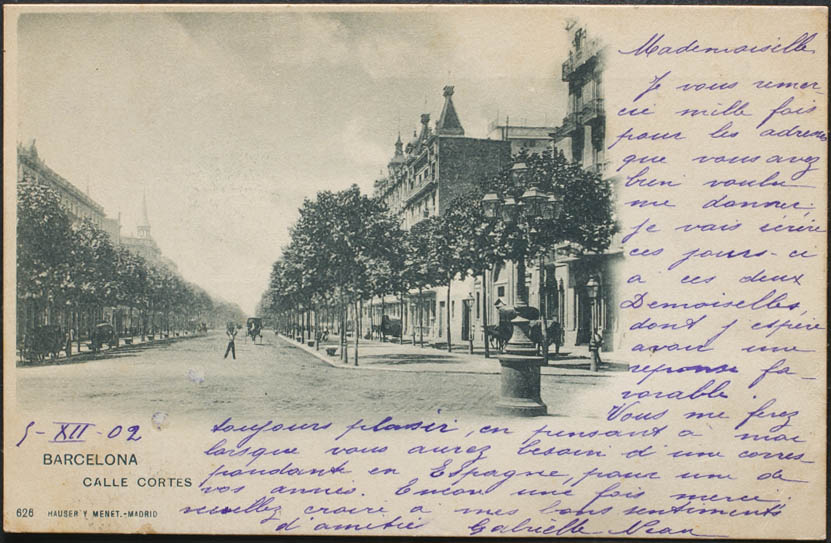 Mademoiselle
Je vous remer-
cie mille fois
pour les adresses
que vous avez
bien voulu
me donner,
je vais écrire
ces jours-ci
a ces deux
Demoiselles,
dont j espère
avoir une
reponse fa-
vorable.
Vous me ferez
toujours plaisir, en pensant a moi
lorsque vous aurez besoin d'une corres-
pondante en Espagne, pour une de
vos amies. Encore une fois merci
veuillez croire a mes bons sentiments
d'amitié Gabrielle
5-XII-02
BARCELONA
CALLE CORTES
626 HAUSER Y MENET.-MADRID